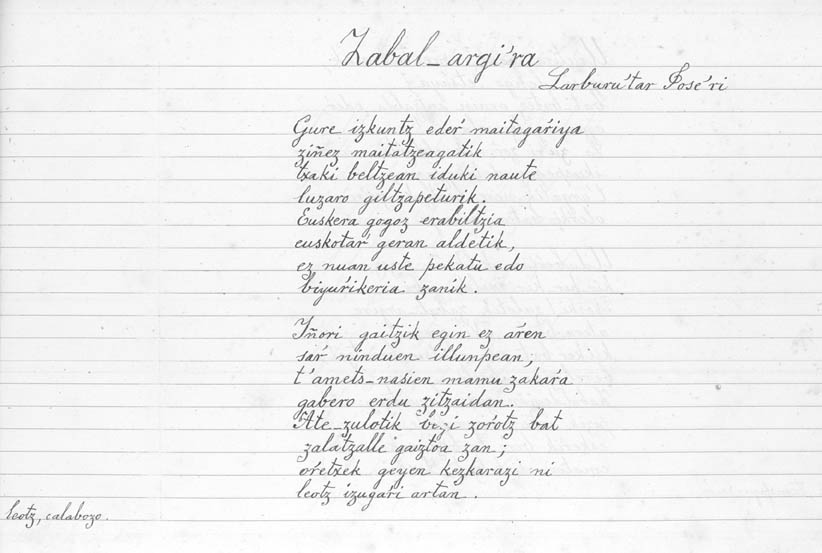 Zabal-argi'ra
Larburu'tar Jose'ri
Gure izkuntz ederŕ maitagaŕiya
ziñez maitatzeagatik
txaki beltzean iduki naute
luzaro giltzapeturik.
Euskera gogoz erabiltzia
euskotaŕ geran aldetik,
ez nuan uste pekatu edo
biyuŕikeria zanik.
Iñori gaitzik egin ez áren
saŕ ninduen illunpean;
t'amets-nasien mamu zakaŕa
gabero erdu zitzaidan.
Ate-zulotik begi zoŕotz bat
zalatzalle gaiztoa zan;
oŕetxek geyen kezkarazi ni
leotz izugaŕi artan.
leotz, calabozo.